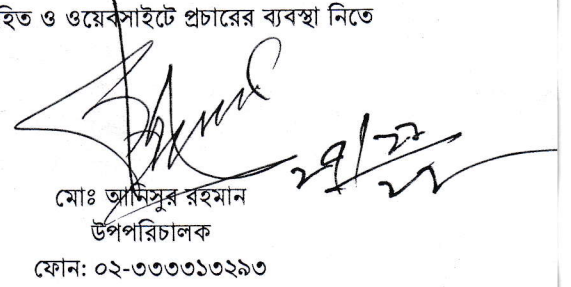 হিত ও ওয়েবসাইটে প্রচারের ব্যবস্থা নিতে
মোঃ আনিসুর রহমান
উপপরিচালক
ফোন: ০২-৩৩৩৩১৩২৯৩